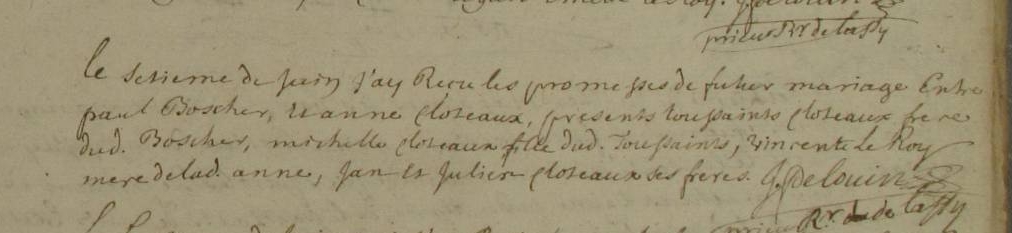 prieur Rr de lassy
le sesieme de juin j'ay Receu les promesses de futur mariage Entre
paul Boscher, et anne cloteaux, presents toussaints cloteaux frere
dud. Boscher, michelle cloteaux fille dud. Toussaints, vincente Le Roy
mere de lad. anne, Jan et Julien cloteaux ses freres. J. Delouin
prieur Rr de lassy